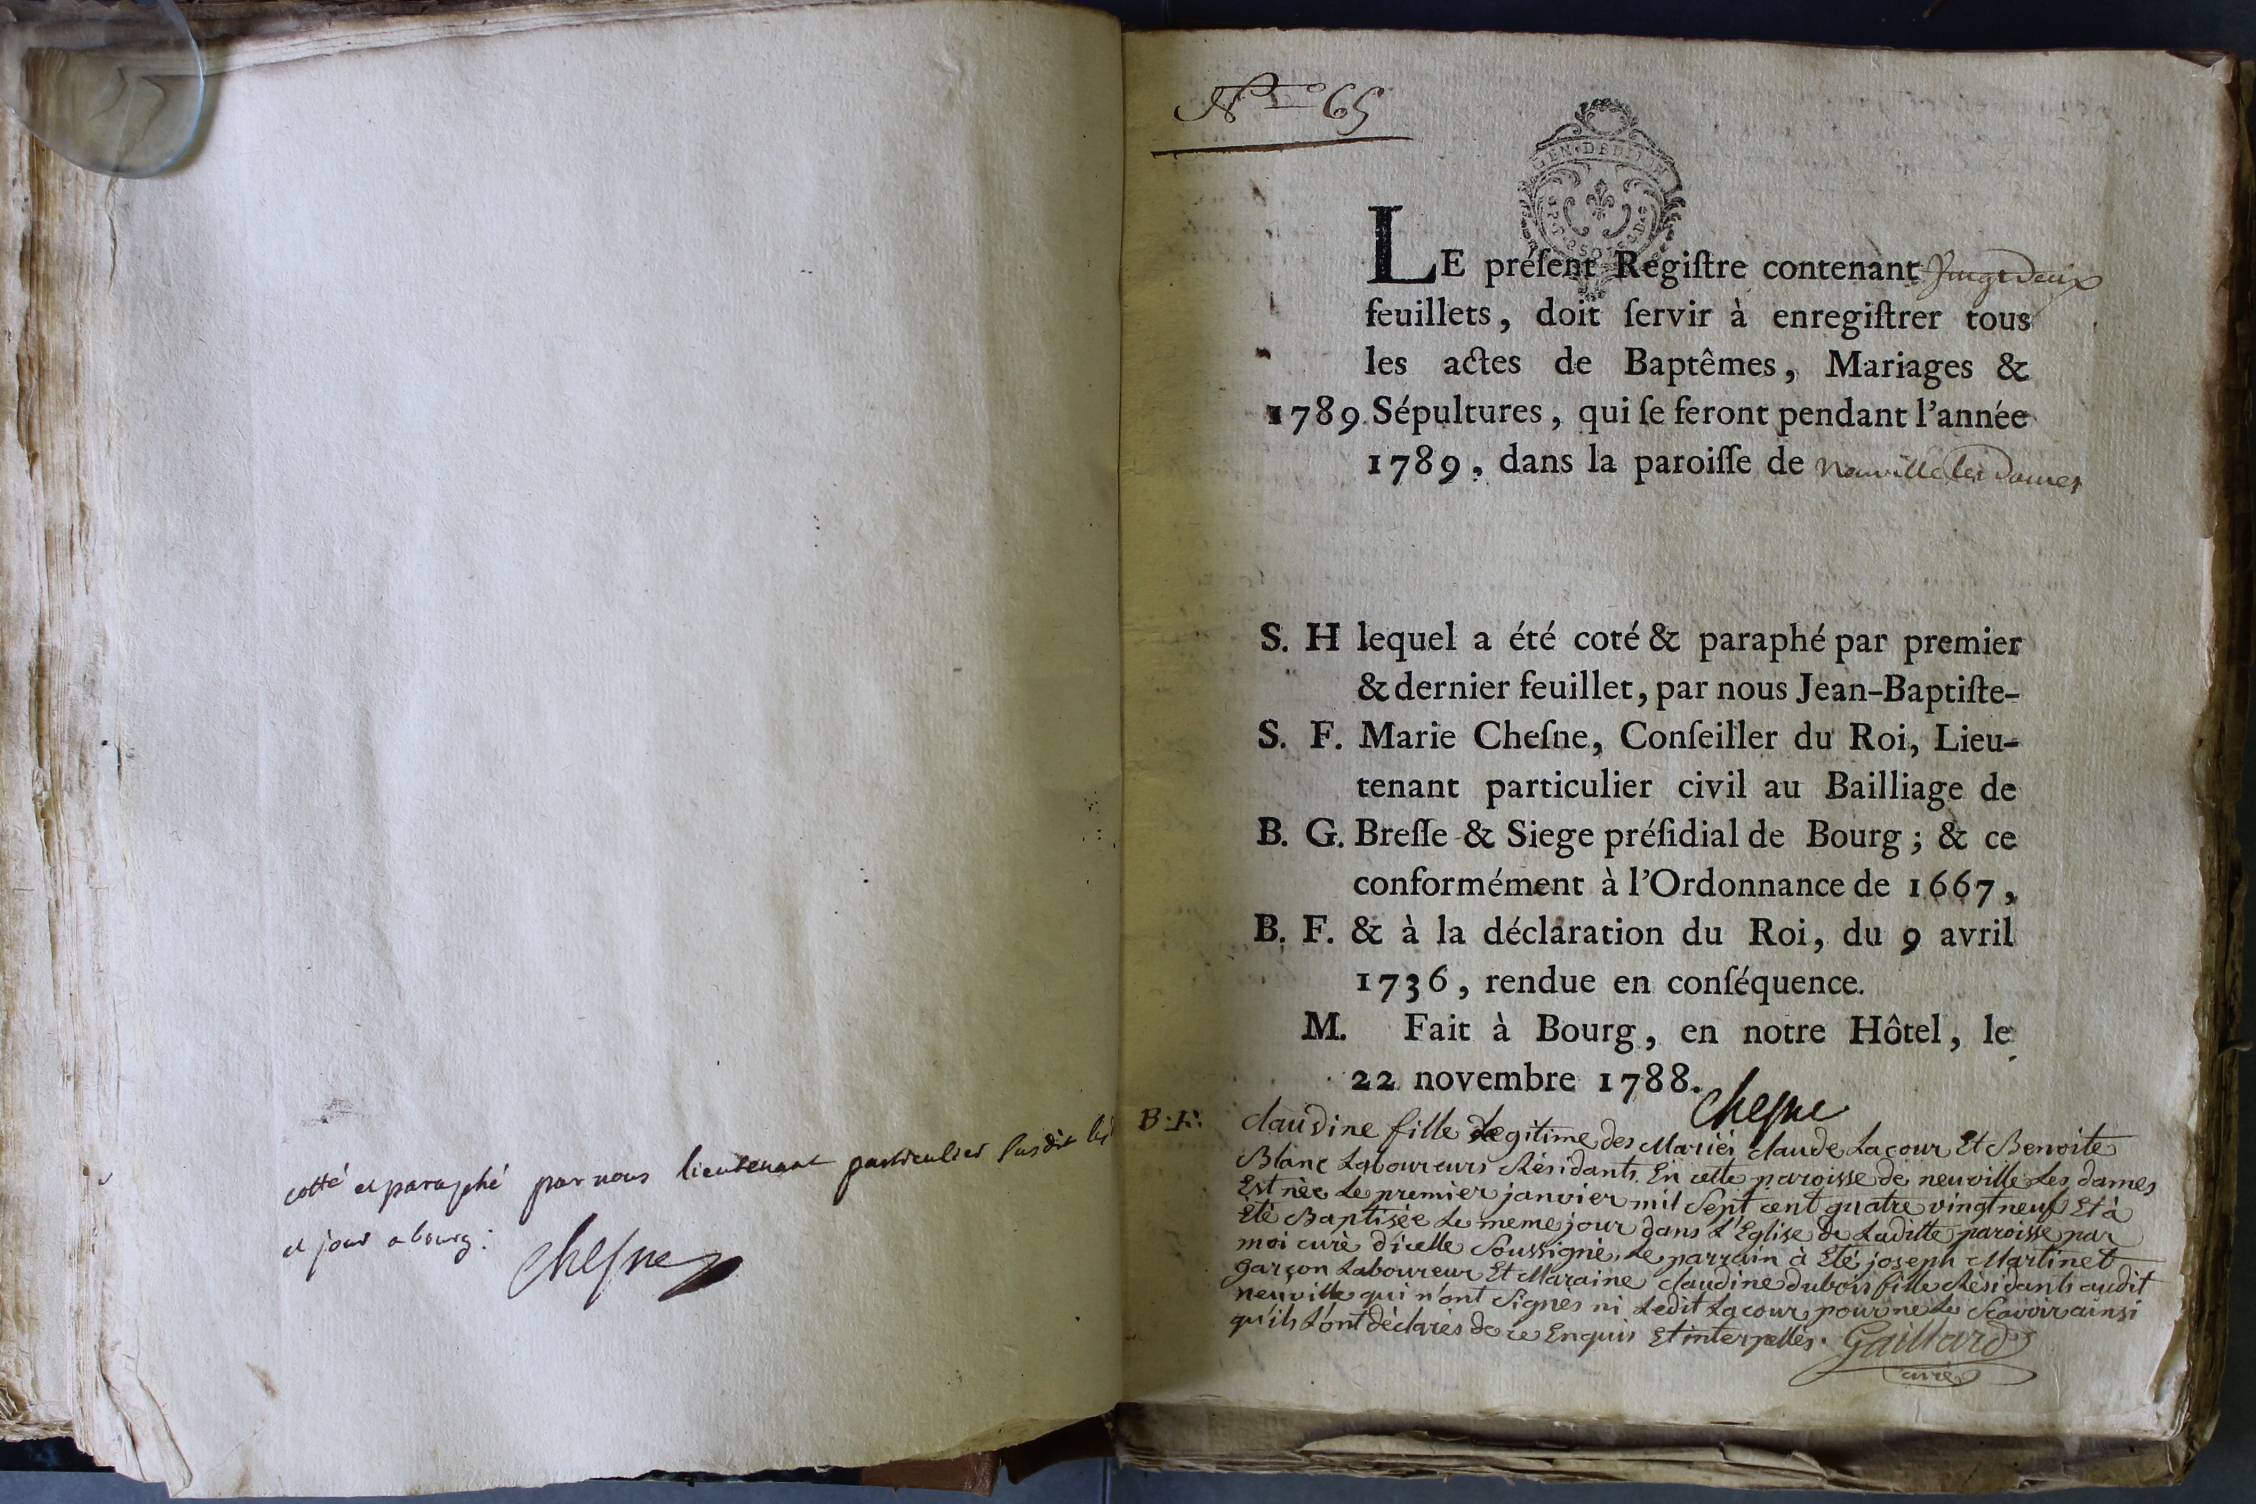 cotté et paraphé par nous lieutenant particulier susdit les
et jour a bourg:
Chesne
N.ro 65
GEN. DE DIJON
LE préſent Regiſtre contenant vingt deux
feuillets, doit ſervir à enregiſtrer tous
les actes de Baptêmes, Mariages &
1789. Sépultures, qui ſe feront pendant l'année
1789, dans la paroiſſe de neuville les dames
S. H lequel a été coté & paraphé par premier
& dernier feuillet, par nous Jean-Baptiſte-
S. F. Marie Cheſne, Conſeiller du Roi, Lieu-
tenant particulier civil au Bailliage de
B. G. Breſſe & Siege préſidial de Bourg; & ce
conformément à l'Ordonnance de 1667,
B. F. & à la déclaration du Roi, du 9 avril
1736, rendue en conſéquence.
M. Fait à Bourg, en notre Hôtel, le
22 novembre 1788.
Chesne
B. F. Claudine fille Legitime des Mariés Claude Lacour Et Benoite
Blanc Laboureurs Résidants En cette paroisse de neuville Les dames
Est née Le premier janvier mil Sept cent quatre vingt neuf Et à
Eté Baptisée Le meme jour dans L'Eglise de Laditte paroisse par
moi curé d'icelle Soussigné, Le parrain à Eté joseph Martinet
garçon Laboureur Et Maraine Claudine dubois fille Résidants audit
neuville qui n'ont Signés ni Ledit Lacour pour ne Le Scavoir ainsi
qu'ils L'ont déclarés de ce Enquis Et interpellés. Gaillard
curé